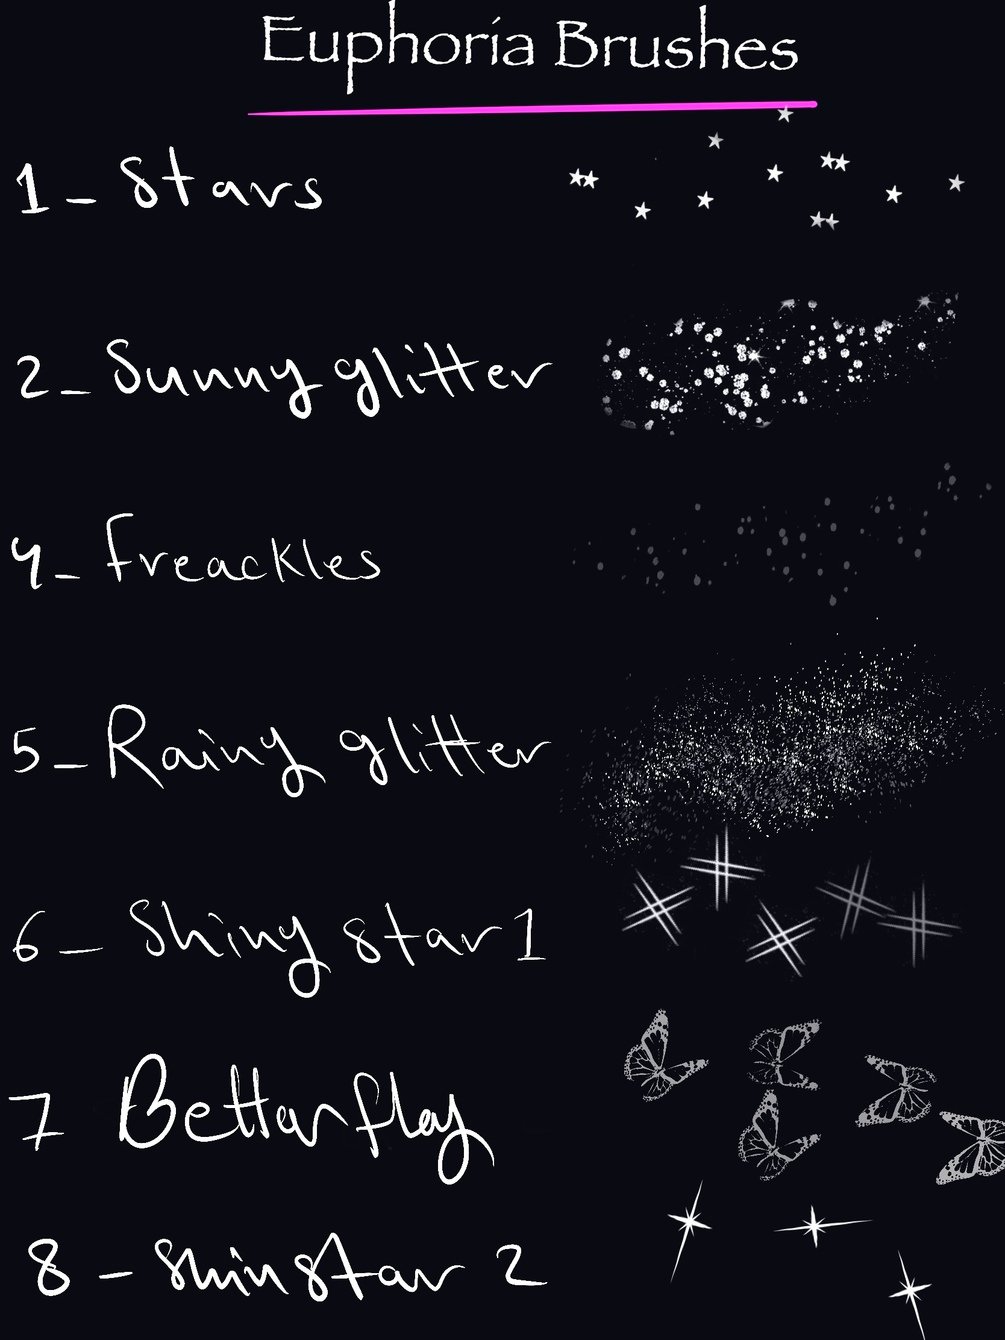 Euphoria Brushes
1 - Stars
2 - Sunny glitter
4 - freackles
5 - Rainy glitter
6 - Shiny star 1
7 Betterflay
8 - Shin star 2